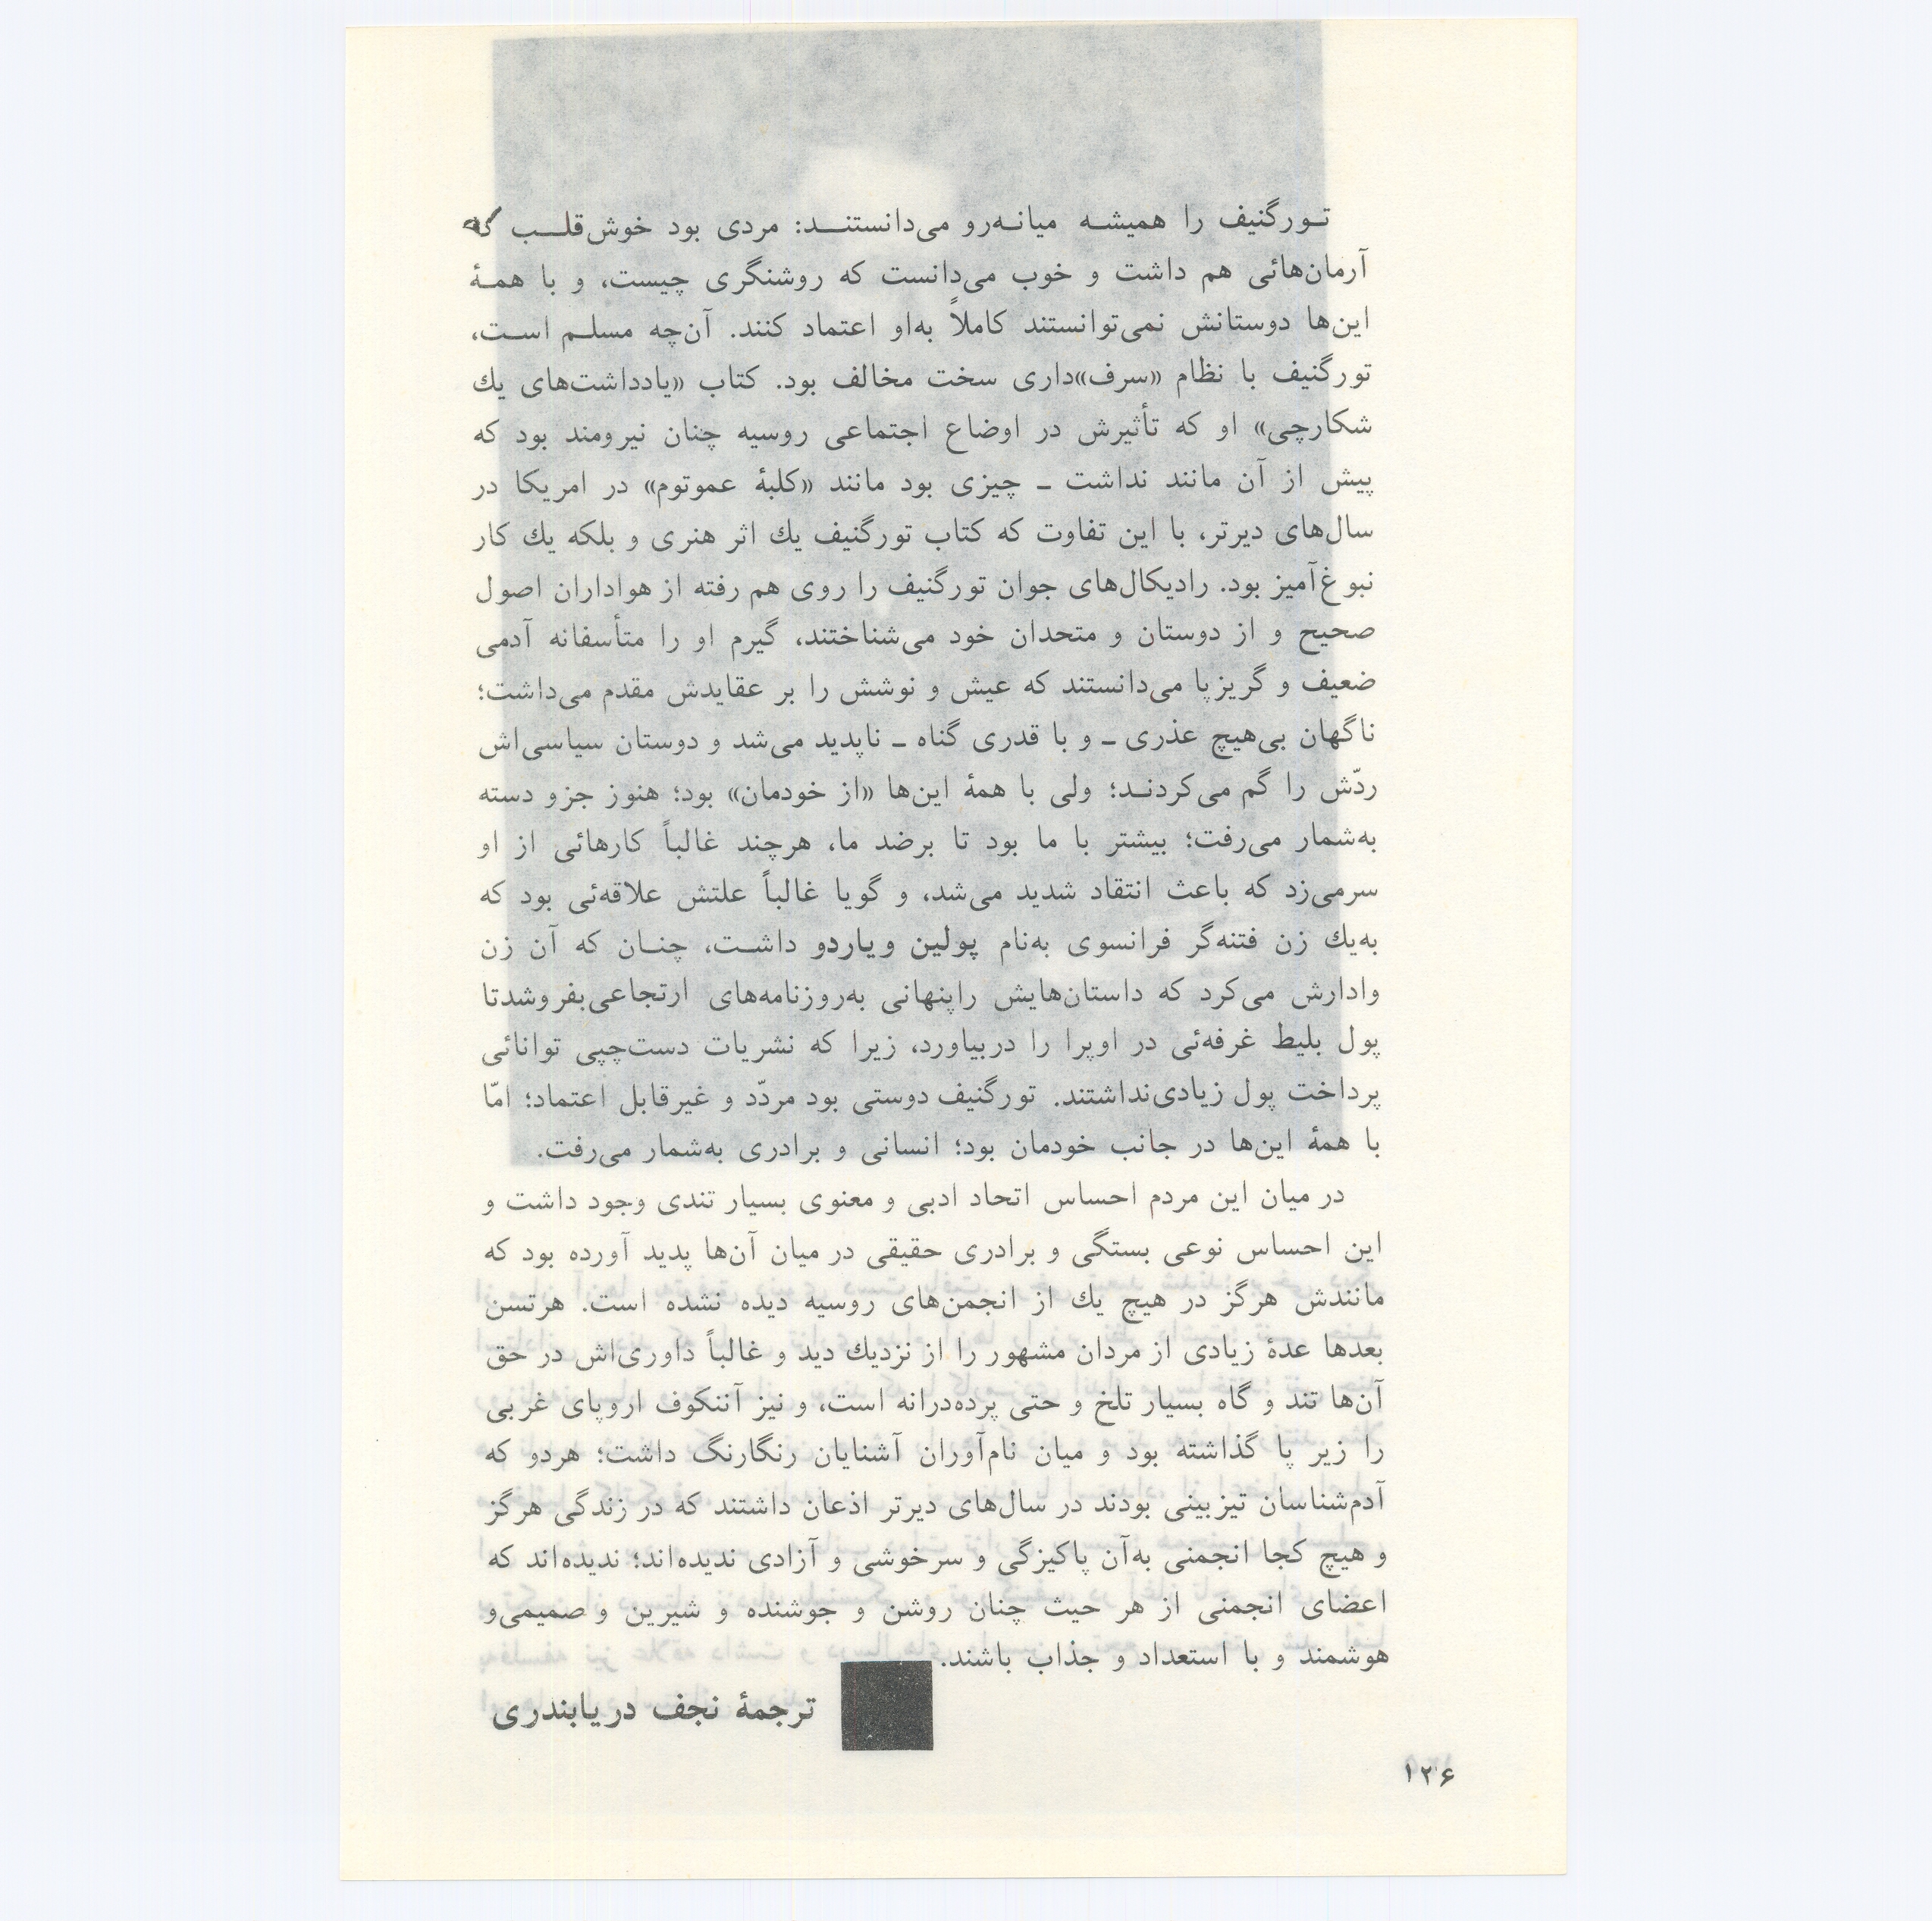 تورگنیف را همیشه میانه‌رو می‌دانستند: مردی بود خوش‌قلب که
آرمان‌هائی هم داشت و خوب می‌دانست که روشنگری چیست، و با همهٔ
این‌ها دوستانش نمی‌توانستند کاملاً به‌او اعتماد کنند. آن‌چه مسلم است،
تورگنیف با نظام «سرف»داری سخت مخالف بود. کتاب «یادداشت‌های یك
شکارچی» او که تأثیرش در اوضاع اجتماعی روسیه چنان نیرومند بود که
پیش از آن مانند نداشت ـ چیزی بود مانند «کلبهٔ عموتوم» در امریکا در
سال‌های دیرتر، با این تفاوت که کتاب تورگنیف یك اثر هنری و بلکه یك کار
نبوغ‌آمیز بود. رادیکال‌های جوان تورگنیف را روی هم رفته از هواداران اصول
صحیح و از دوستان و متحدان خود می‌شناختند، گیرم او را متأسفانه آدمی
ضعیف و گریزپا می‌دانستند که عیش و نوشش را بر عقایدش مقدم می‌داشت؛
ناگهان بی‌هیچ عذری ـ و با قدری گناه ـ ناپدید می‌شد و دوستان سیاسی‌اش
ردّش را گم می‌کردند؛ ولی با همهٔ این‌ها «از خودمان» بود؛ هنوز جزو دسته
به‌شمار می‌رفت؛ بیشتر با ما بود تا برضد ما، هرچند غالباً کارهائی از او
سرمی‌زد که باعث انتقاد شدید می‌شد، و گویا غالباً علتش علاقه‌ئی بود که
به‌یك زن فتنه‌گر فرانسوی به‌نام پولین ویاردو داشت، چنان که آن زن
وادارش می‌کرد که داستان‌هایش راپنهانی به‌روزنامه‌های ارتجاعی‌بفروشدتا
پول بلیط غرفه‌ئی در اوپرا را دربیاورد، زیرا که نشریات دست‌چپی توانائی
پرداخت پول زیادی‌نداشتند. تورگنیف دوستی بود مردّد و غیرقابل اعتماد؛ امّا
با همهٔ این‌ها در جانب خودمان بود؛ انسانی و برادری به‌شمار می‌رفت.
در میان این مردم احساس اتحاد ادبی و معنوی بسیار تندی وجود داشت و
این احساس نوعی بستگی و برادری حقیقی در میان آن‌ها پدید آورده بود که
مانندش هرگز در هیچ یك از انجمن‌های روسیه دیده نشده است. هرتسن
بعدها عدهٔ زیادی از مردان مشهور را از نزدیك دید و غالباً داوری‌اش در حق
آن‌ها تند و گاه بسیار تلخ و حتی پرده‌درانه است، و نیز آننکوف اروپای غربی
را زیر پا گذاشته بود و میان نام‌آوران آشنایان رنگارنگ داشت؛ هردو که
آدم‌شناسان تیزبینی بودند در سال‌های دیرتر اذعان داشتند که در زندگی هرگز
و هیچ کجا انجمنی به‌آن پاکیزگی و سرخوشی و آزادی ندیده‌اند؛ ندیده‌اند که
اعضای انجمنی از هر حیث چنان روشن و جوشنده و شیرین و صمیمی‌و
هوشمند و با استعداد و جذاب باشند.
ترجمهٔ نجف دریابندری
۱۲۶